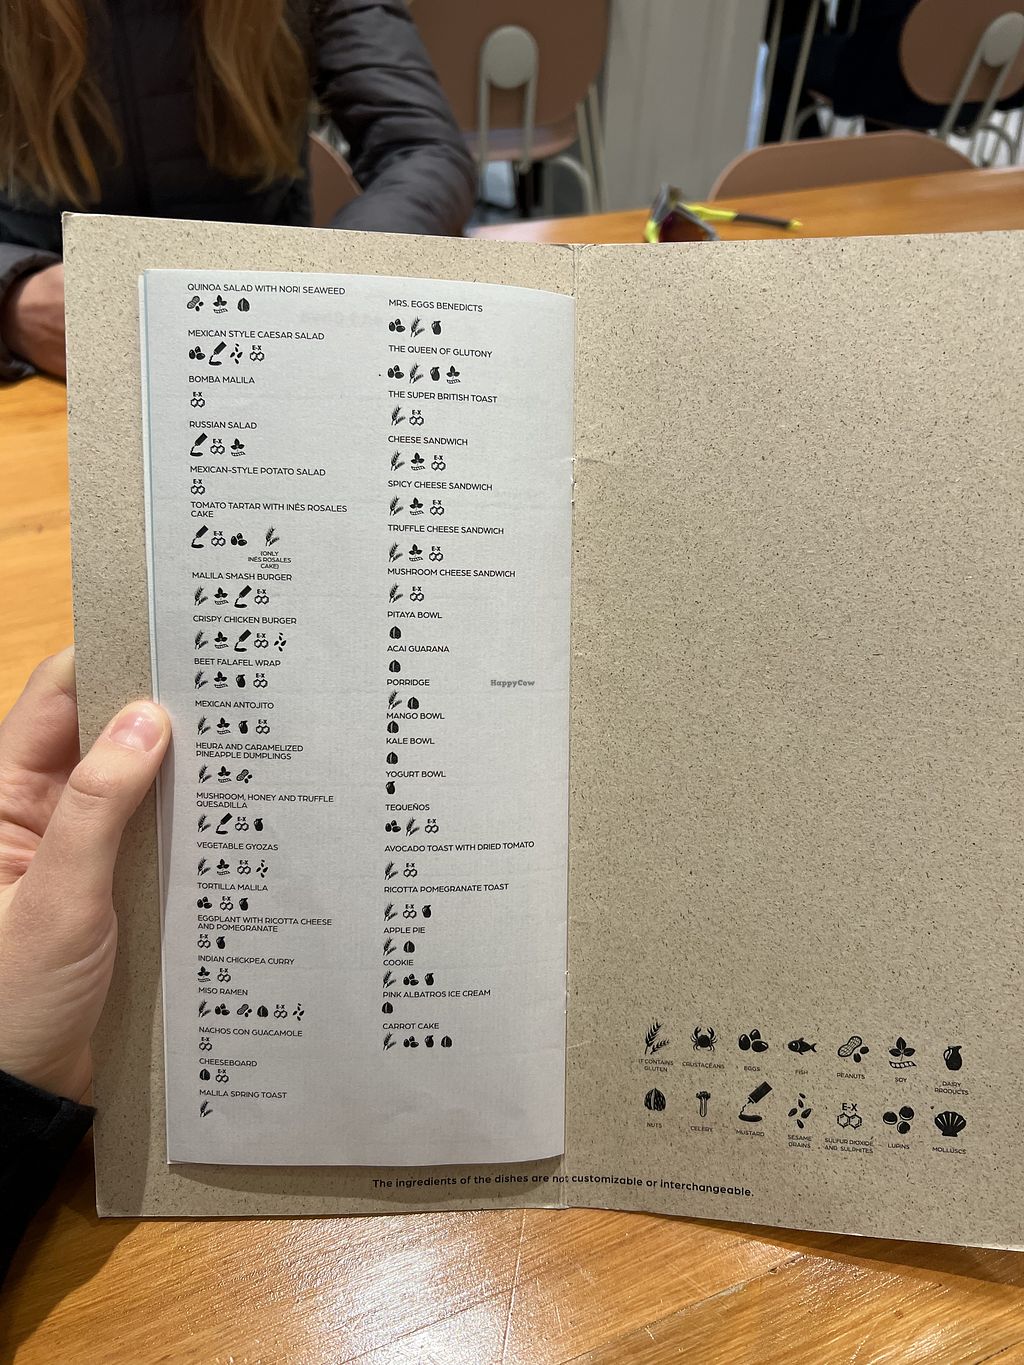 QUINOA SALAD WITH NORI SEAWEED
MEXICAN STYLE CAESAR SALAD
E-X
BOMBA MALILA
E-X
RUSSIAN SALAD
E-X
MEXICAN-STYLE POTATO SALAD
E-X
TOMATO TARTAR WITH INÉS ROSALES
CAKE
E-X
(ONLY
INÉS ROSALES
CAKE)
MALILA SMASH BURGER
E-X
CRISPY CHICKEN BURGER
E-X
BEET FALAFEL WRAP
E-X
MEXICAN ANTOJITO
E-X
HEURA AND CARAMELIZED
PINEAPPLE DUMPLINGS
MUSHROOM, HONEY AND TRUFFLE
QUESADILLA
E-X
VEGETABLE GYOZAS
E-X
TORTILLA MALILA
E-X
EGGPLANT WITH RICOTTA CHEESE
AND POMEGRANATE
E-X
INDIAN CHICKPEA CURRY
E-X
MISO RAMEN
E-X
NACHOS CON GUACAMOLE
E-X
CHEESEBOARD
E-X
MALILA SPRING TOAST
MRS. EGGS BENEDICTS
THE QUEEN OF GLUTONY
THE SUPER BRITISH TOAST
E-X
CHEESE SANDWICH
E-X
SPICY CHEESE SANDWICH
E-X
TRUFFLE CHEESE SANDWICH
E-X
MUSHROOM CHEESE SANDWICH
E-X
PITAYA BOWL
ACAI GUARANA
PORRIDGE
MANGO BOWL
KALE BOWL
YOGURT BOWL
TEQUEÑOS
E-X
AVOCADO TOAST WITH DRIED TOMATO
E-X
RICOTTA POMEGRANATE TOAST
E-X
APPLE PIE
COOKIE
PINK ALBATROS ICE CREAM
CARROT CAKE
HappyCow
IT CONTAINS
GLUTEN
CRUSTACEANS
EGGS
FISH
PEANUTS
SOY
DAIRY
PRODUCTS
NUTS
CELERY
MUSTARD
SESAME
GRAINS
E-X
SULFUR DIOXIDE
AND SULPHITES
LUPINS
MOLLUSCS
The ingredients of the dishes are not customizable or interchangeable.